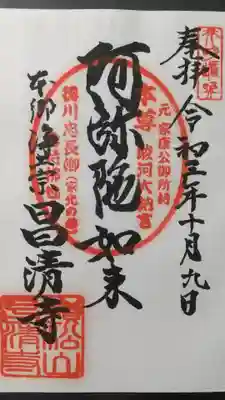 奉拝
令和三年十月九日
元 家康公御所持
本尊 駿河大納言
阿弥陀如来
徳川忠長卿(家光の弟)
本郷
浄土宗
昌清寺